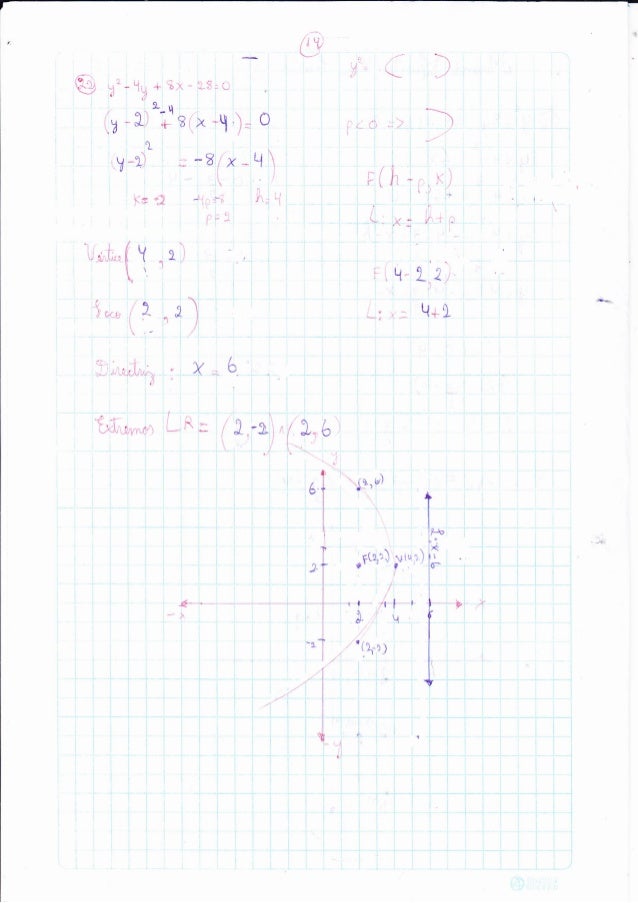 14
22 y² - 4y + 8x - 28 = 0
y² =
(y - 2)² - 4 + 8(x - 4) = 0
p < 0 =>
(y - 2)² = -8(x - 4)
F(h - p, K)
K = 2 4p = 8 h = 4
p = 2
L: x = h + p
Vértice (4, 2)
F(4 - 2, 2)
Foco (2, 2)
L: x = 4 + 2
Directriz : x = 6
Extremos LR = (2, -2) ∧ (2, 6)
y
6 (2, 6)
L: x = 6
2 F(2,2) V(4,2)
-x 2 4 6 x
-2 (2,-2)
-y